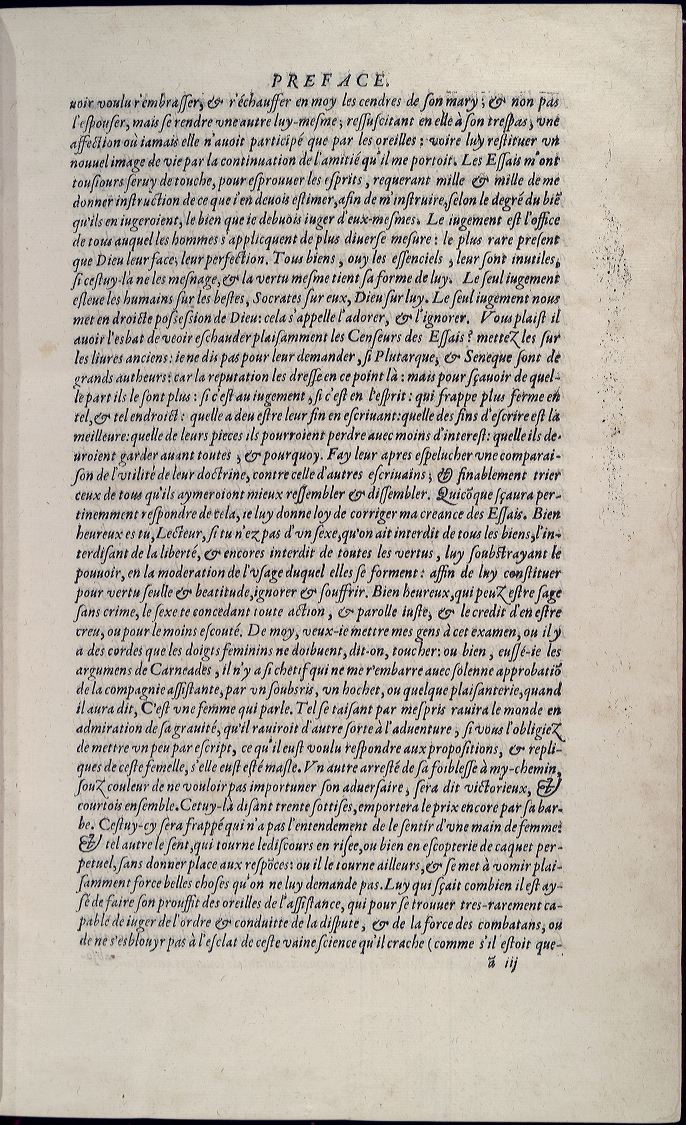 PREFACE.
uoir voulu r'embrasser, & r'échauffer en moy les cendres de son mary; & non pas
l'espouser, mais se rendre vne autre luy-mesme; ressuscitant en elle à son trespas, vne
affection où iamais elle n'auoit participé que par les oreilles: voire luy restituer vn
nouuel image de vie par la continuation de l'amitié qu'il me portoit. Les Essais m'ont
tousiours seruy de touche, pour esprouuer les esprits, requerant mille & mille de me
donner instruction de ce que i'en deuois estimer, afin de m'instruire, selon le degré du biē
qu'ils en iugeroient, le bien que ie debuois iuger d'eux-mesmes. Le iugement est l'office
de tous auquel les hommes s'applicquent de plus diuerse mesure: le plus rare present
que Dieu leur face; leur perfection. Tous biens, ouy les essenciels, leur sont inutiles,
si cestuy-là ne les mesnage, & la vertu mesme tient sa forme de luy. Le seul iugement
esleue les humains sur les bestes, Socrates sur eux, Dieu sur luy. Le seul iugement nous
met en droicte possession de Dieu: cela s'appelle l'adorer, & l'ignorer. Vous plaist il
auoir l'esbat de veoir eschauder plaisamment les Censeurs des Essais? mettez les sur
les liures anciens: ie ne dis pas pour leur demander, si Plutarque, & Seneque sont de
grands autheurs: car la reputation les dresse en ce point là: mais pour sçauoir de quel-
le part ils le sont plus: si c'est au iugement, si c'est en l'esprit: qui frappe plus ferme en
tel, & tel endroict: quelle a deu estre leur fin en escriuant: quelle des fins d'escrire est la
meilleure: quelle de leurs pieces ils pourroient perdre auec moins d'interest: quelle ils de-
uroient garder auant toutes, & pourquoy. Fay leur apres espelucher vne comparai-
son de l'vtilité de leur doctrine, contre celle d'autres escriuains; & finablement trier
ceux de tous qu'ils aymeroiont mieux ressembler & dissembler. Quicōque sçaura per-
tinemment respondre de cela, ie luy donne loy de corriger ma creance des Essais. Bien
heureux es tu, Lecteur, si tu n'ez pas d'vn sexe, qu'on ait interdit de tous les biens, l'in-
terdisant de la liberté, & encores interdit de toutes les vertus, luy soubstrayant le
pouuoir, en la moderation de l'vsage duquel elles se forment: affin de luy constituer
pour vertu seulle & beatitude, ignorer & souffrir. Bien heureux, qui peuz estre sage
sans crime, le sexe te concedant toute action, & parolle iuste, & le credit d'en estre
creu, ou pour le moins escouté. De moy, veux-ie mettre mes gens à cet examen, ou il y
a des cordes que les doigts feminins ne doibuent, dit-on, toucher: ou bien, eussé-ie les
argumens de Carneades, il n'y a si chetif qui ne me r'embarre auec solenne approbatiō
de la compagnie assistante, par vn soubsris, vn hochet, ou quelque plaisanterie, quand
il aura dit, C'est vne femme qui parle. Tel se taisant par mespris rauira le monde en
admiration de sa grauité, qu'il rauiroit d'autre sorte à l'aduenture, si vous l'obligiez
de mettre vn peu par escript, ce qu'il eust voulu respondre aux propositions, & repli-
ques de ceste femelle, s'elle eust esté masle. Vn autre arresté de sa foiblesse à my-chemin,
souz couleur de ne vouloir pas importuner son aduersaire, sera dit victorieux, &
courtois ensemble. Cetuy-là disant trente sottises, emportera le prix encore par sa bar-
be. Cestuy-cy sera frappé qui n'a pas l'entendement de le sentir d'vne main de femme:
& tel autre le sent, qui tourne le discours en risee, ou bien en escopterie de caquet per-
petuel, sans donner place aux respōces: ou il le tourne ailleurs, & se met à vomir plai-
samment force belles choses qu'on ne luy demande pas. Luy qui sçait combien il est ay-
sé de faire son prouffit des oreilles de l'assistance, qui pour se trouuer tres-rarement ca-
pable de iuger de l'ordre & conduitte de la dispute, & de la force des combatans, ou
de ne s'esblouyr pas à l'esclat de ceste vaine science qu'il crache (comme s'il estoit que-
ã iij